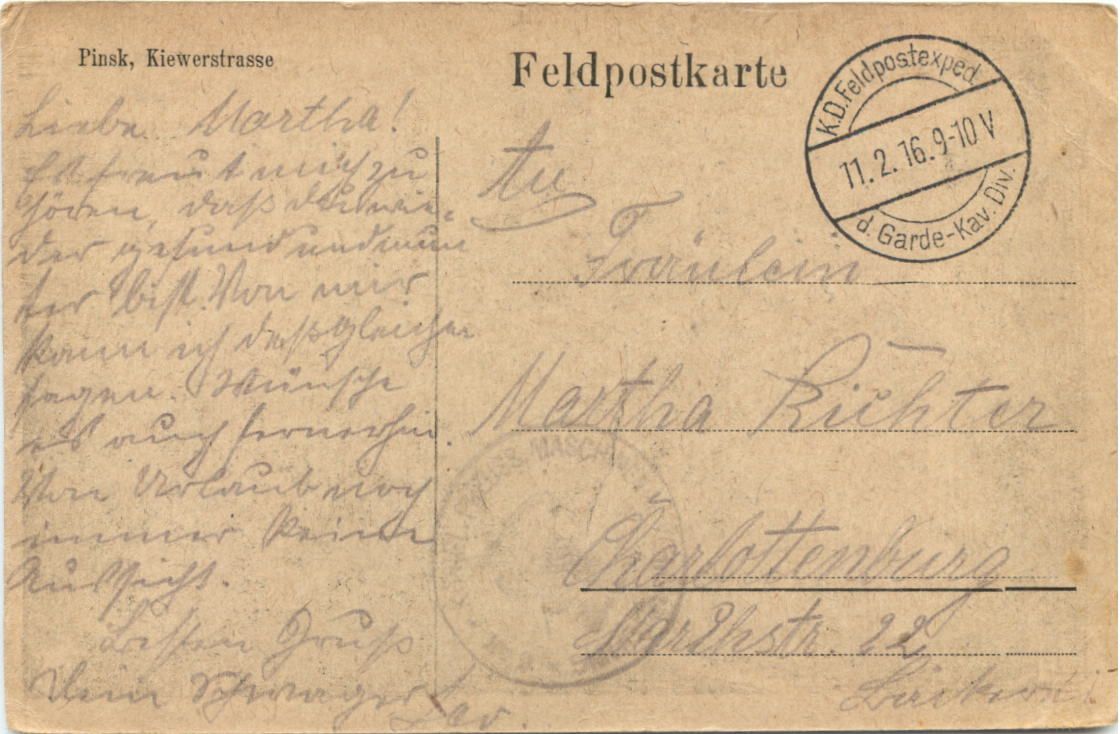 Pinsk, Kiewerstrasse
Feldpostkarte
K.D.Feldpostexped.
11.2.16.9-10V
d. Garde-Kav. Div.
Liebe Martha!
Es freut mich zu
hören, daß du wie-
der gesund und mun
ter bist. Von mir
kann ich desßgleichen
sagen. Wünsche
es auch fernerhin.
Von Urlaub noch
immer keine
Aussicht.
Besten Gruß
Dein Schwager
An
Fräulein
Martha Richter
Charlottenburg
22
MASCHINEN